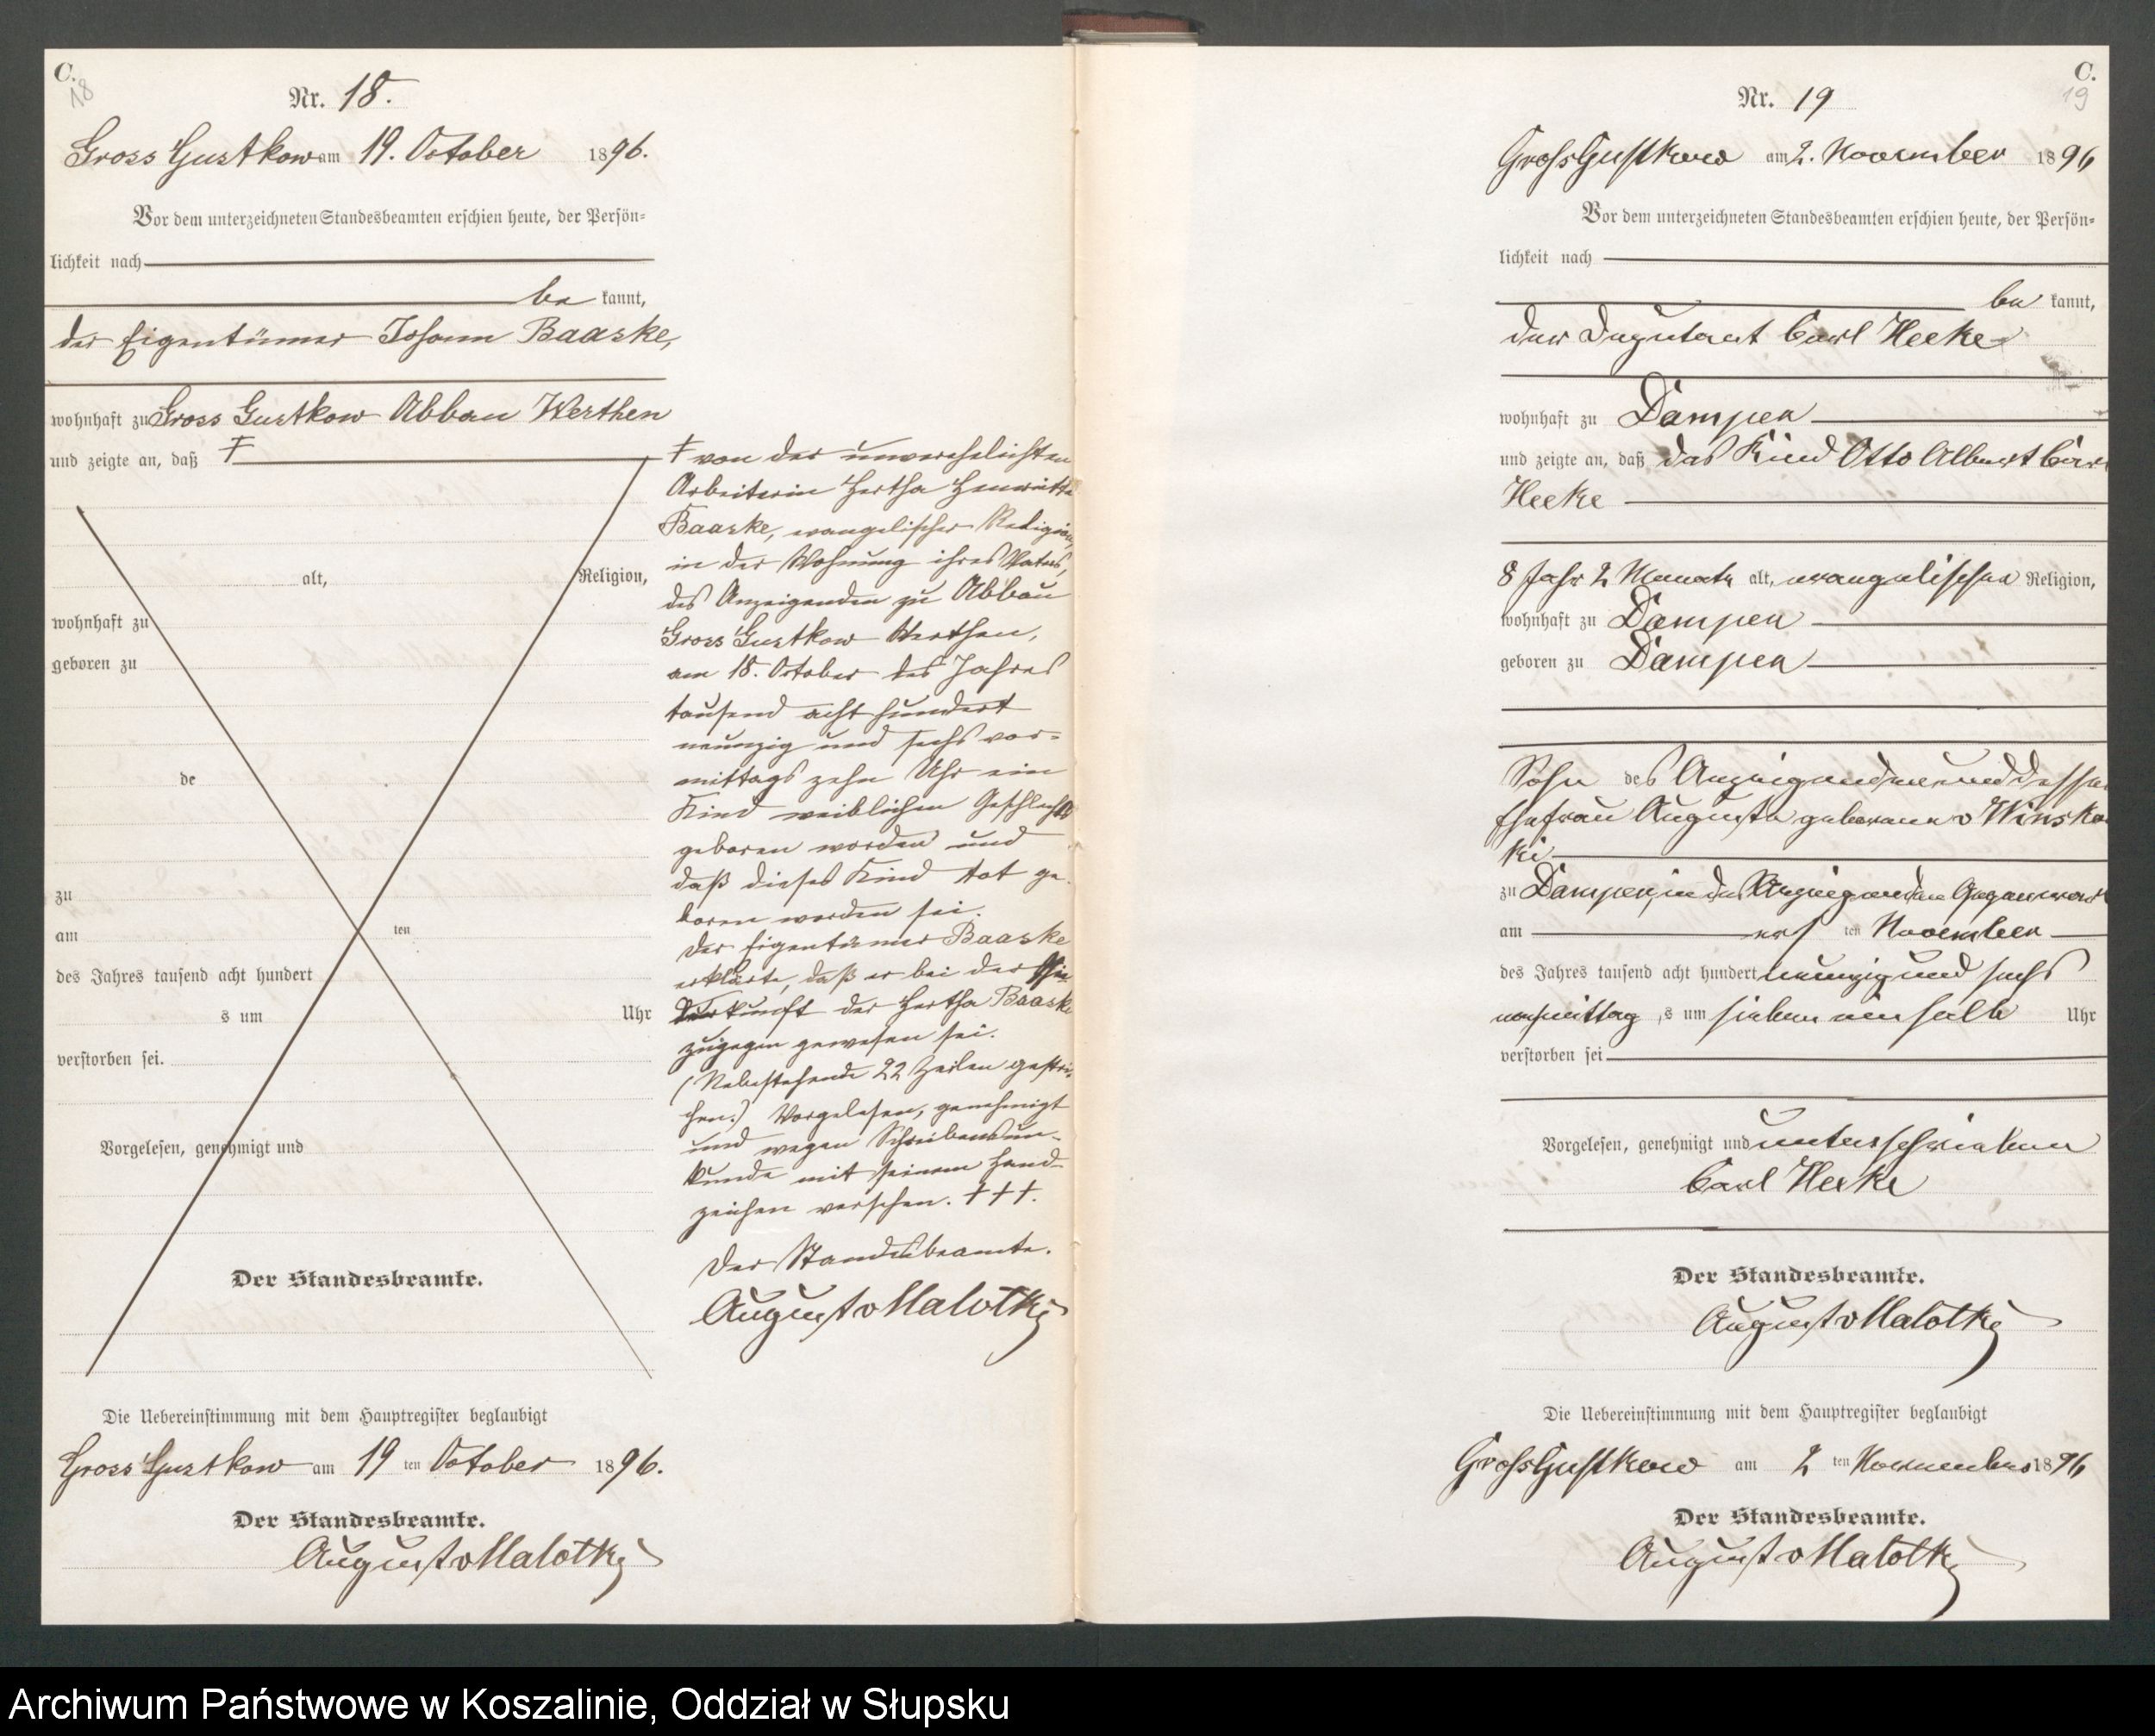 C.
18
Nr. 18.
Gross Gustkow am 19. October 1896.
Vor dem unterzeichneten Standesbeamten erschien heute, der Persön-
lichkeit nach
be kannt,
der Eigentümer Johann Baaske,
wohnhaft zu Gross Gustkow Abbau Werthen
und zeigte an, daß ‡
alt, Religion,
wohnhaft zu
geboren zu
de
zu
am ten
des Jahres tausend acht hundert
s um Uhr
verstorben sei.
Vorgelesen, genehmigt und
Der Standesbeamte.
Die Uebereinstimmung mit dem Hauptregister beglaubigt
Gross Gustkow am 19 ten October 1896.
Der Standesbeamte.
August v Malotky
‡ von der unverehelichten
Arbeiterin Hertha Henriette
Baaske, evangelischer Religion,
in der Wohnung ihres Vaters,
des Anzeigenden zu Abbau
Gross Gustkow Werthen,
am 18. October des Jahres
tausend acht hundert
neunzig und sechs vor-
mittags zehn Uhr ein
Kind weiblichen Geschlechts
geboren worden und
daß dieses Kind tot ge-
boren worden sei.
Der Eigentümer Baaske
erklärte, daß er bei der Nie-
kunft der Hertha Baaske
zugegen gewesen sei.
(Nebenstehende 22 Zeilen gestri-
chen.) Vorgelesen, genehmigt
und wegen Schreibensun-
kunde mit seinem Hand-
zeichen versehen. †††.
Der Standesbeamte.
August v Malotky
C.
19
Nr. 19
Groß Gustkow am 2. November 1896
Vor dem unterzeichneten Standesbeamten erschien heute, der Persön-
lichkeit nach
be kannt,
der Deputant Carl Heeke
wohnhaft zu Dampen
und zeigte an, daß das Kind Otto Albert Carl
Heeke
8 Jahr 2 Monate alt, evangelischer Religion,
wohnhaft zu Dampen
geboren zu Dampen
Sohn des Anzeigenden und dessen
Ehefrau Auguste geborene v Winsko
ki
zu Dampen, in des Anzeigenden Gegenwart
am ersten November
des Jahres tausend acht hundert neunzig und sechs
nachmittag s um sieben ein halb Uhr
verstorben sei
Vorgelesen, genehmigt und unterschrieben
Carl Heeke
Der Standesbeamte.
August v Malotky
Die Uebereinstimmung mit dem Hauptregister beglaubigt
Groß Gustkow am 2 ten November 1896
Der Standesbeamte.
August v Malotky
Archiwum Państwowe w Koszalinie, Oddział w Słupsku